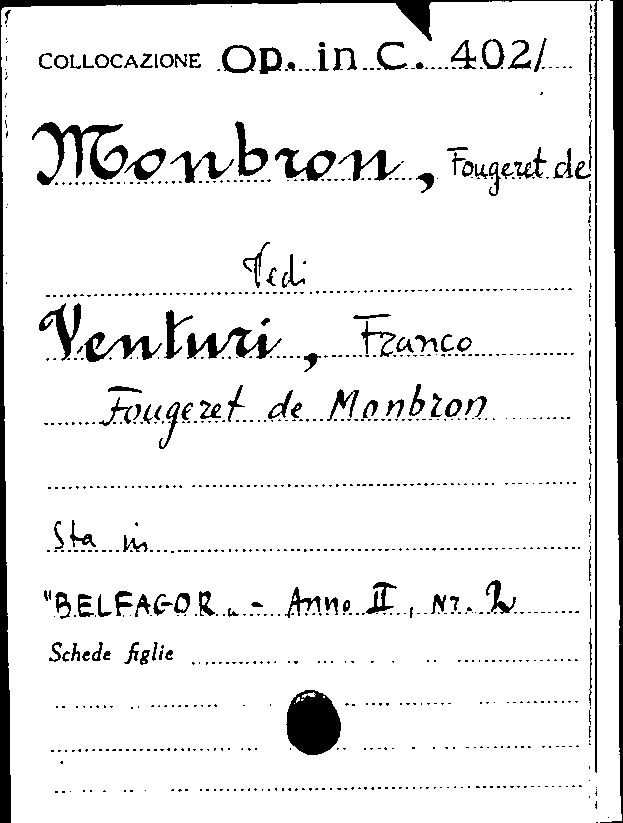 COLLOCAZIONE Op. in C. 402/
Monbron, Fougeret de
Vedi
Venturi, Franco
Fougeret de Monbron
Sta in
"BELFAGOR„ - Anno II, Nr. 2
Schede figlie